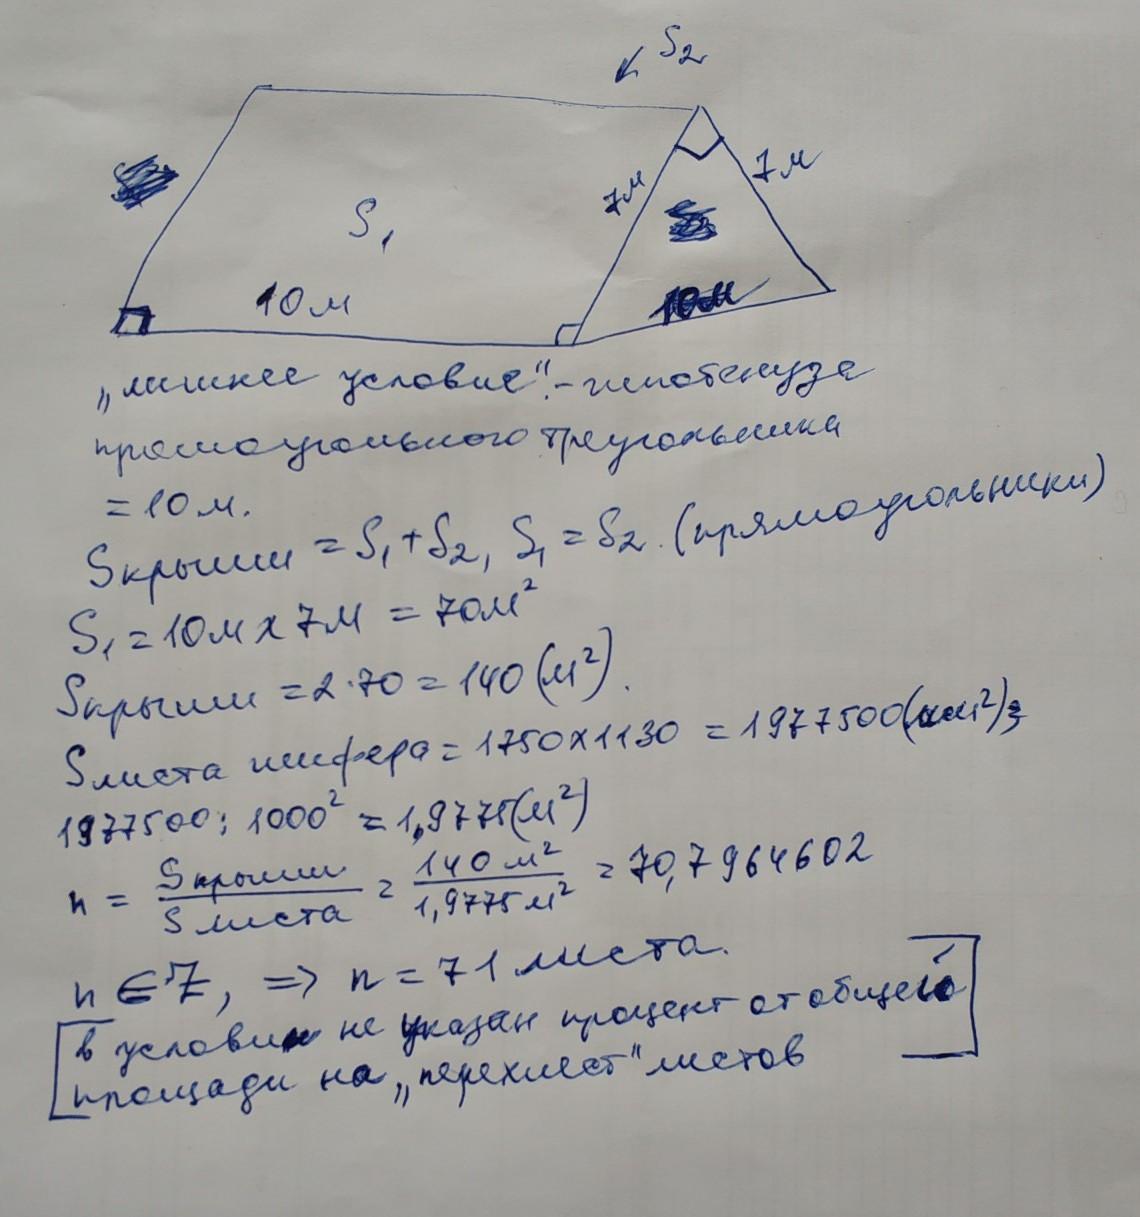 S₂
7м
7м
S₁
10м
10м
„лишнее условие“ - гипотенуза
прямоугольного треугольника
= 10 м.
Sкрыши = S₁ + S₂, S₁ = S₂. (прямоугольники)
S₁ = 10м x 7м = 70м²
Sкрыши = 2·70 = 140 (м²).
Sлиста шифера = 1750x1130 = 1977500(мм²);
1977500 : 1000² = 1,9775(м²)
n = Sкрыши / Sлиста = 140 м² / 1,9775 м² = 70,7964602
n ∈ Z, => n = 71 листа.
в условии не указан процент от общей
площади на „перехлест“ листов